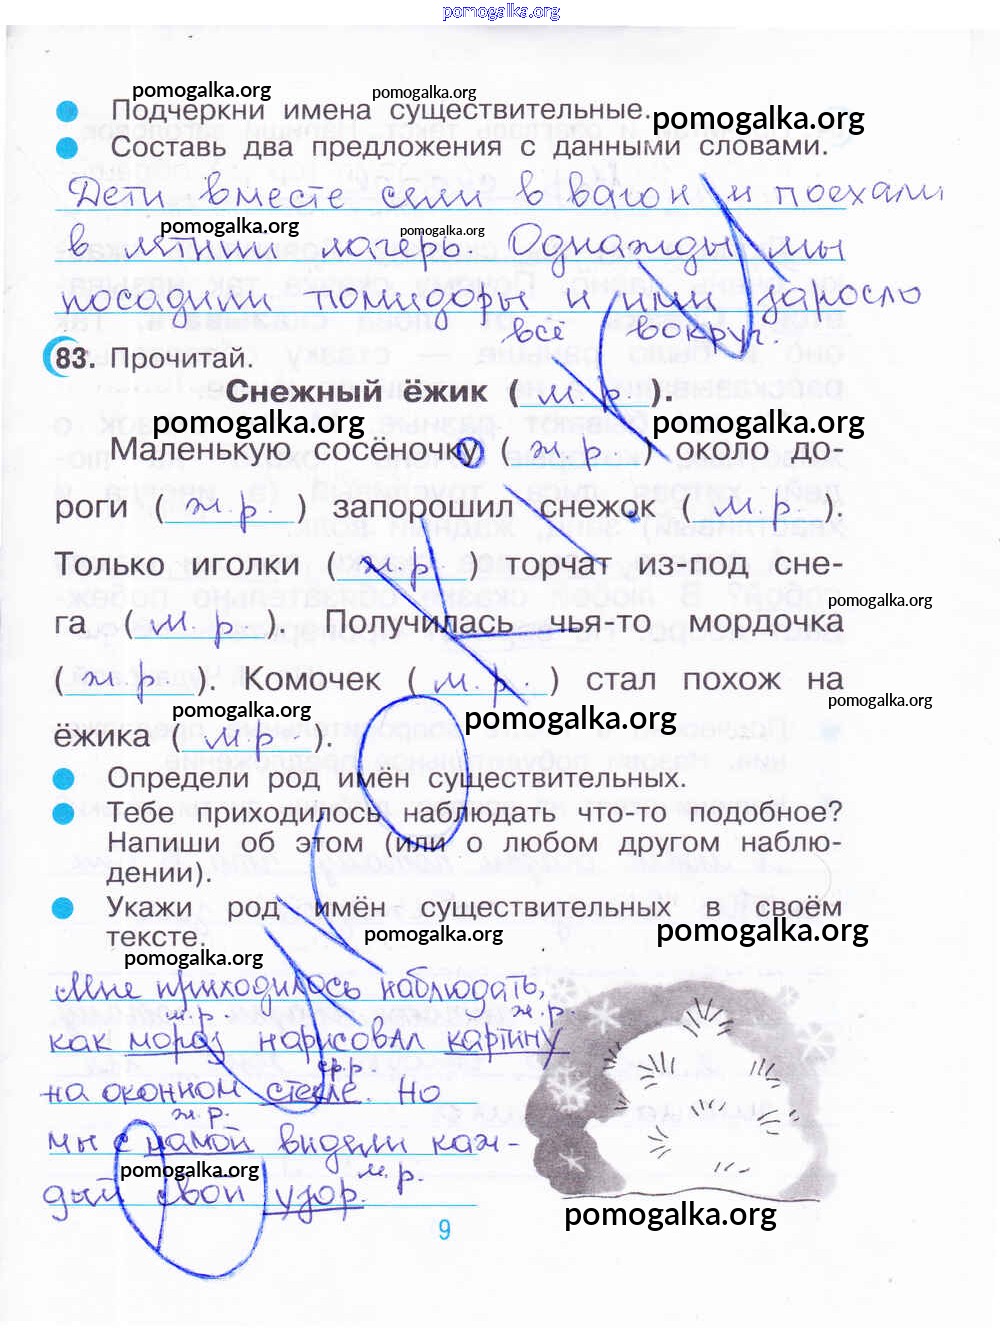 pomogalka.org
pomogalka.org
pomogalka.org
Подчеркни имена существительные.
pomogalka.org
Составь два предложения с данными словами.
Дети вместе сели в вагон и поехали
pomogalka.org
в летний лагерь. Однажды мы
посадили помидоры и ими заросло
всё вокруг.
83. Прочитай.
Снежный ёжик ( м. р. ).
pomogalka.org
pomogalka.org
Маленькую сосёночку ( ж. р. ) около до-
роги ( ж. р. ) запорошил снежок ( м. р. ).
Только иголки ( ж. р. ) торчат из-под сне-
pomogalka.org
га ( м. р. ). Получилась чья-то мордочка
( ж. р. ). Комочек ( м. р. ) стал похож на
pomogalka.org
pomogalka.org
pomogalka.org
ёжика ( м. р. ).
Определи род имён существительных.
Тебе приходилось наблюдать что-то подобное?
Напиши об этом (или о любом другом наблю-
дении).
Укажи род имён существительных в своём
тексте.
pomogalka.org
pomogalka.org
pomogalka.org
Мне приходилось наблюдать,
м. р. ж. р.
как мороз нарисовал картину
ср. р.
на оконном стекле. Но
ж. р.
мы с мамой видели каж-
pomogalka.org
м. р.
дый свой узор.
pomogalka.org
9